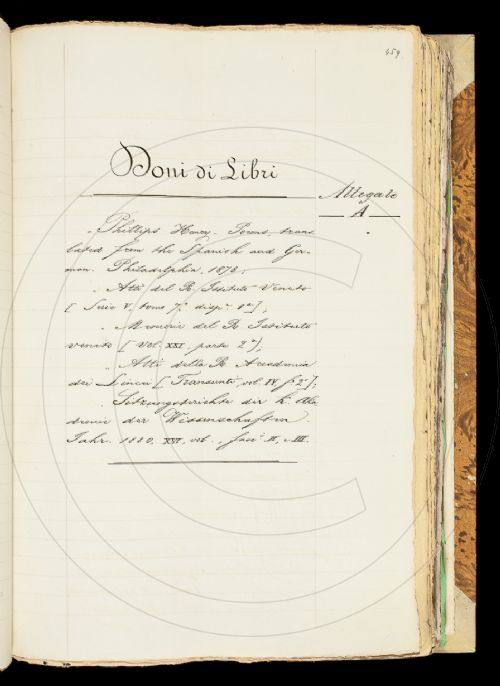 459
Doni di Libri
Allegato
A
„ Phillips Henry. Poems, trans
lated from the Spanish and Ger-
man. Philadelphia 1878;
„ Atti del R. Istituto Veneto
[Serie V. tomo 7.° disp.a 1a];
„ Memorie del R. Istituto
veneto [Vol. XXI. parte 2a];
„ Atti della R. Accademia
dei Lincei [Transunti, vol. IV. f. 2°];
„ Sitzungsberichte der k. Aka
demie der Wissenschaften
Jahr. 1880, XVI, vol. , fasi II, e III.